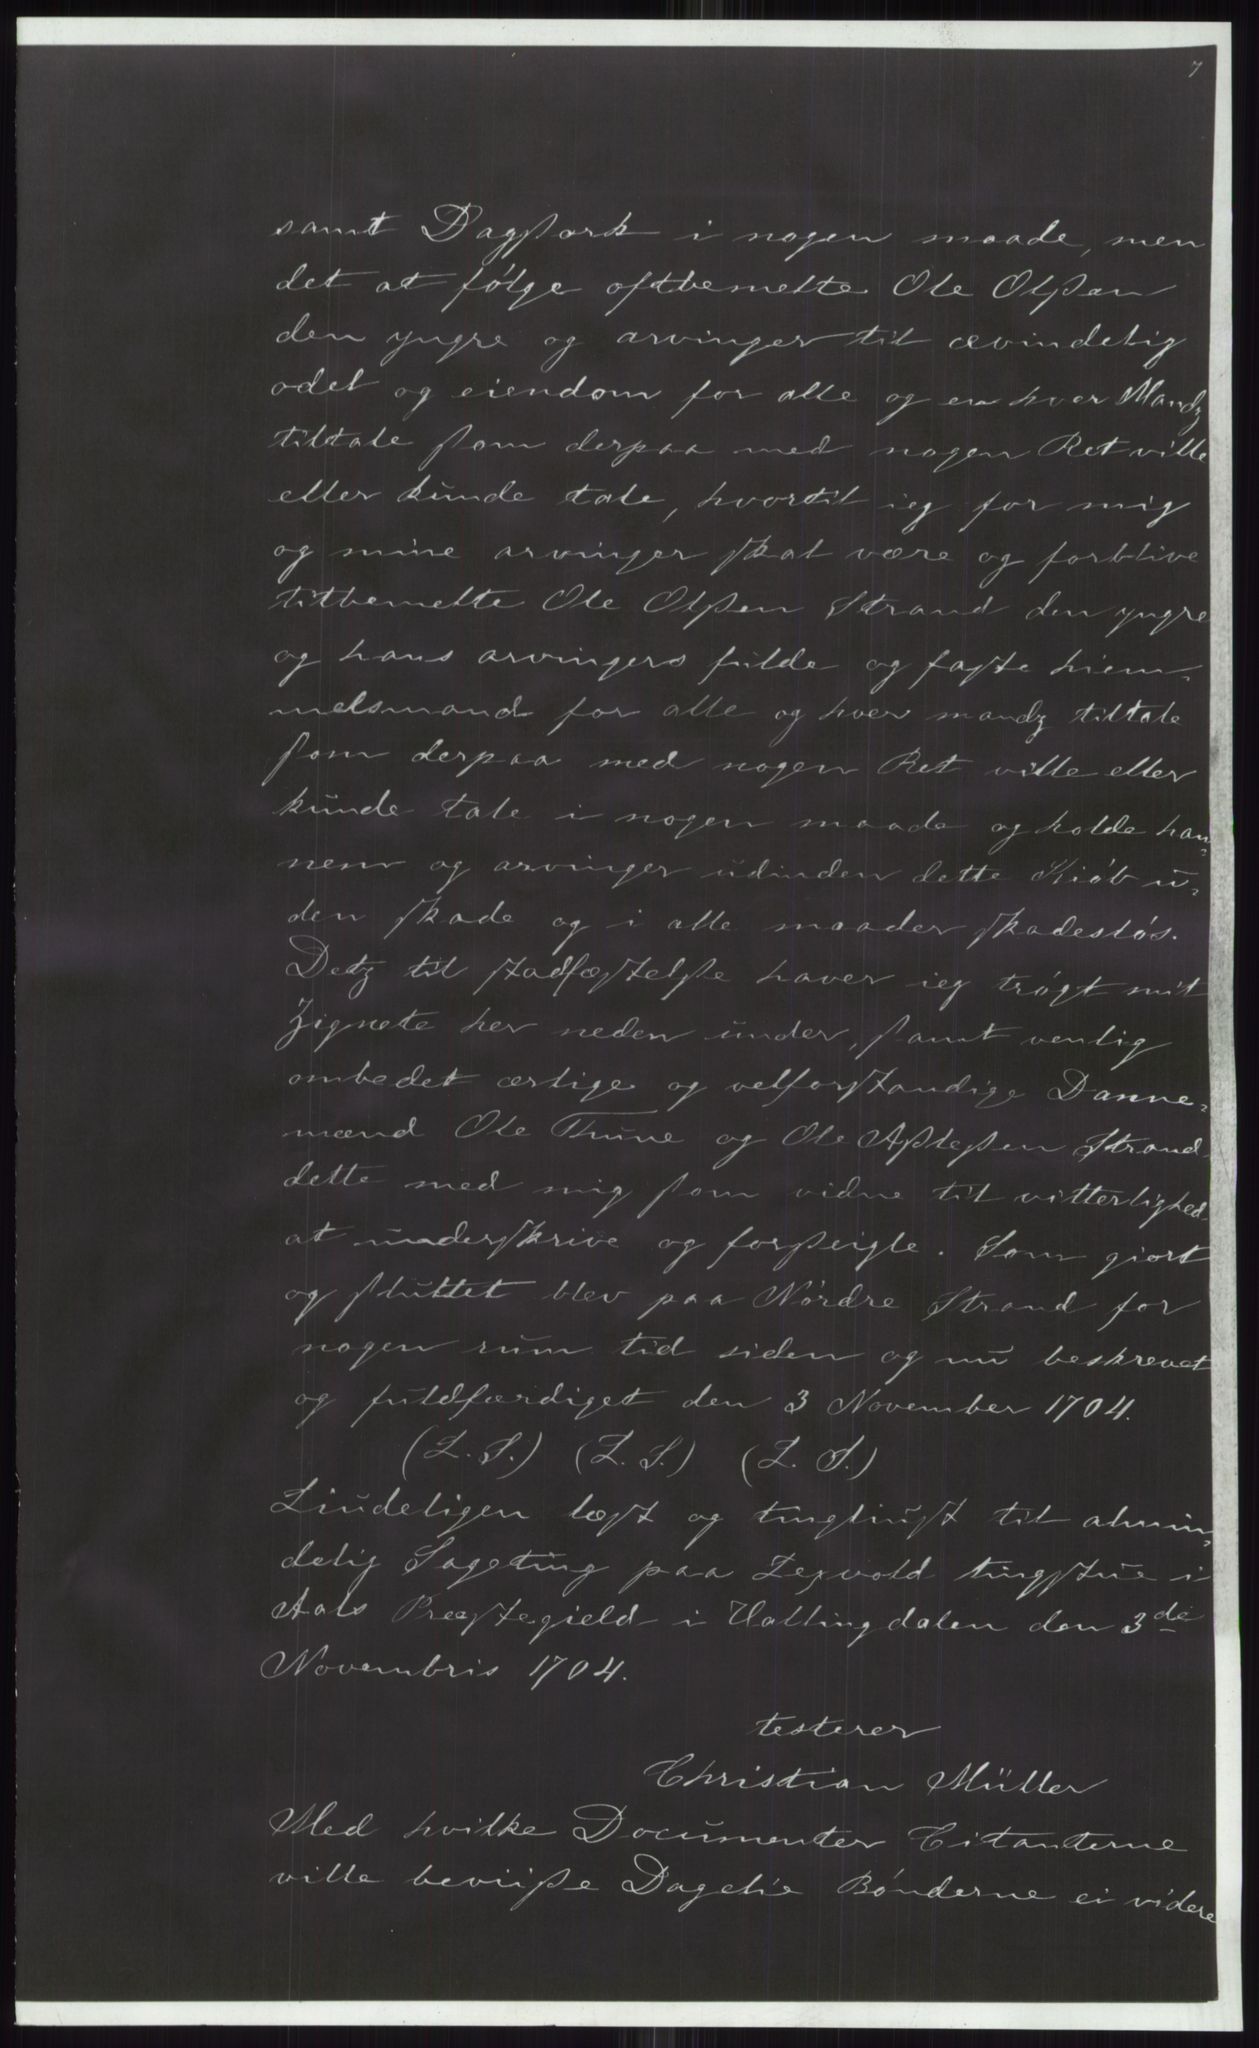 7
samt Dagßark i nogen maade, men
det at følge oftbemelte Ole Olßen
den yngre og arvinger til ævindelig
odel og eiendom for alle og en hver Mandz
tiltale ſom derpaa med nogen Ret ville
eller kunde tale, hvortil ieg for mig
og mine arvinger ſkal være og forblive
titbemelte Ole Olßen Strand den yngre
og hans arvingers fulde og faſte hiem-
melsmand for alle og hver mandz tiltale
ſom derpaa med nogen Ret ville eller
kunde tale i nogen maade og holde han-
nem og arvinger udinden dette Kiøb u-
den ſkade og i alle maader ſkadesløs.
Detz til ſtadfæſtelße haver ieg trøgt mit
Zignete her neden under, ſamt venlig
ombedet ærlige og velforſtandige Danne-
mænd Ole Thune og Ole Aßleßen Strand
dette med mig ſom vidne til vitterlighed
at underſkrive og forſeigle. Som giort
og ſluttet blev paa Nørdre Strand for
nogen rum tid siden og nu beskrevet
og fuldfærdiget den 3 November 1704.
(L. S.) (L. S.) (L. S.)
Liudeligen læſt og tingliuſt til almin-
delig Sageting paa Legvold tingſtue i
Aals Præſtegield i Hallingdalen den 3de
Novembris 1704.
testerer
Christian Müller
Med hvilke Documenter Citanterne
ville beviiße Dagelie Bønderne ei videre